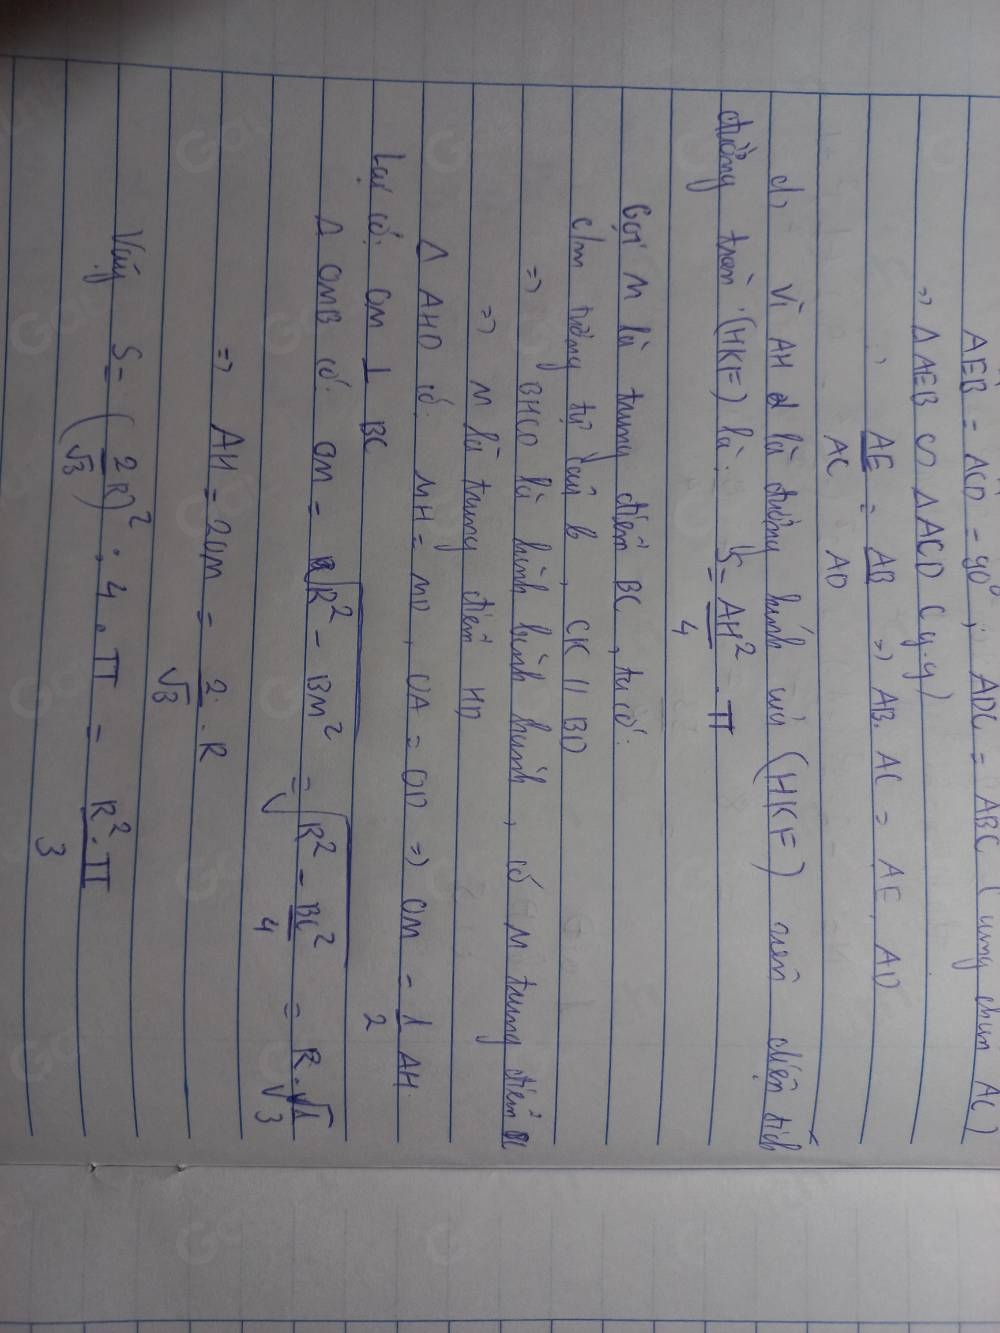 AEB = ACD = 90°; ADC = ABC (cùng chắn AC)
=> Δ AEB ∽ Δ ACD (g.g)
=> AE/AC = AB/AD => AB. AC = AE. AD
d, Vì AH là đường kính của (HKF) nên diện tích
đường tròn (HKF) là: S = AH²/4 . π
Gọi M là trung điểm BC, ta có:
c/m tương tự câu b, CK // BD
=> BHCD là hình bình hành, có M trung điểm BC
=> M là trung điểm HD
Δ AHD có MH = MD, OA = OD => OM = 1/2 AH
Lại có OM ⊥ BC
Δ OMB có OM = √R² - BM² = √R² - BC²/4 = R.√1/√3
=> AH = 2OM = 2/√3 . R
Vậy S = (2R/√3)² : 4 . π = R².π/3